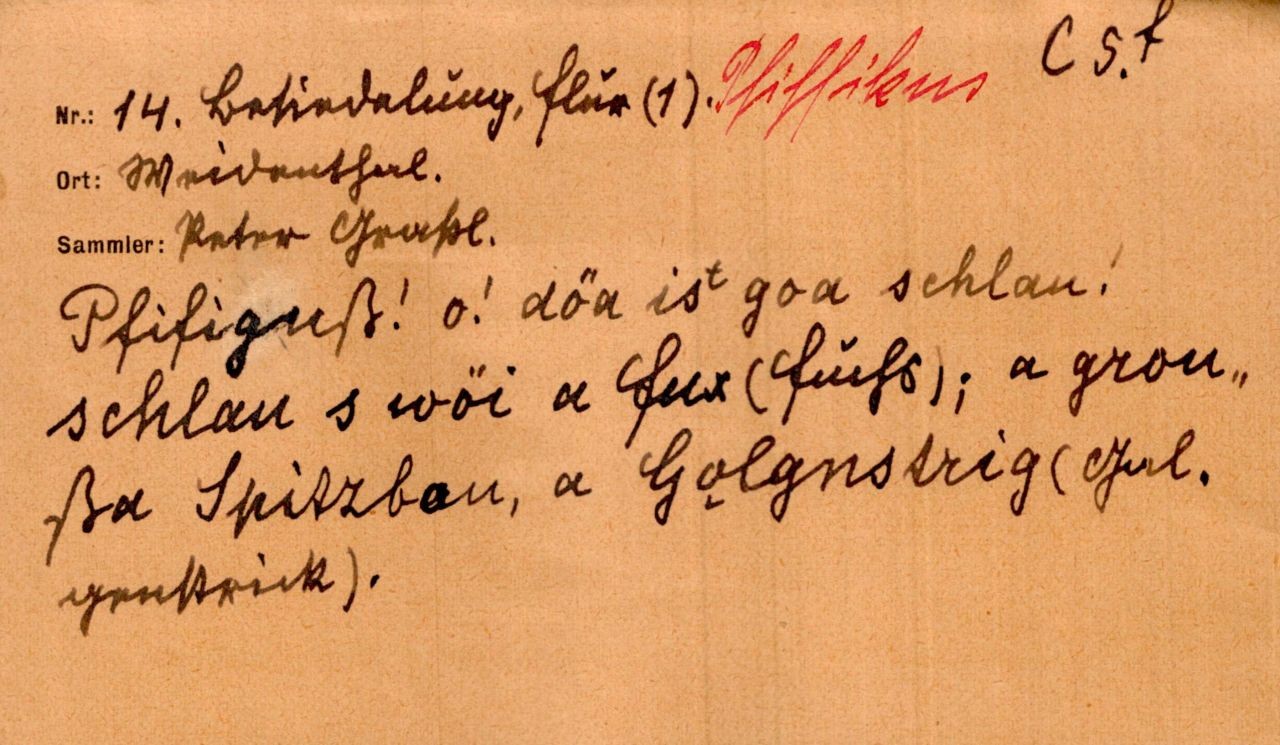 C S. f
Nr.: 14. Besiedelung, Flur (1). Pfiffikus
Ort: Weidenthal.
Sammler: Peter Graßl.
Pfifiguß! o! döa ist goa schlau!
schlau s wöi a Fux (Fuchs); a grou„
ßa Spitzbou, a Gǫlgnstrig (Gal.
genstrick).